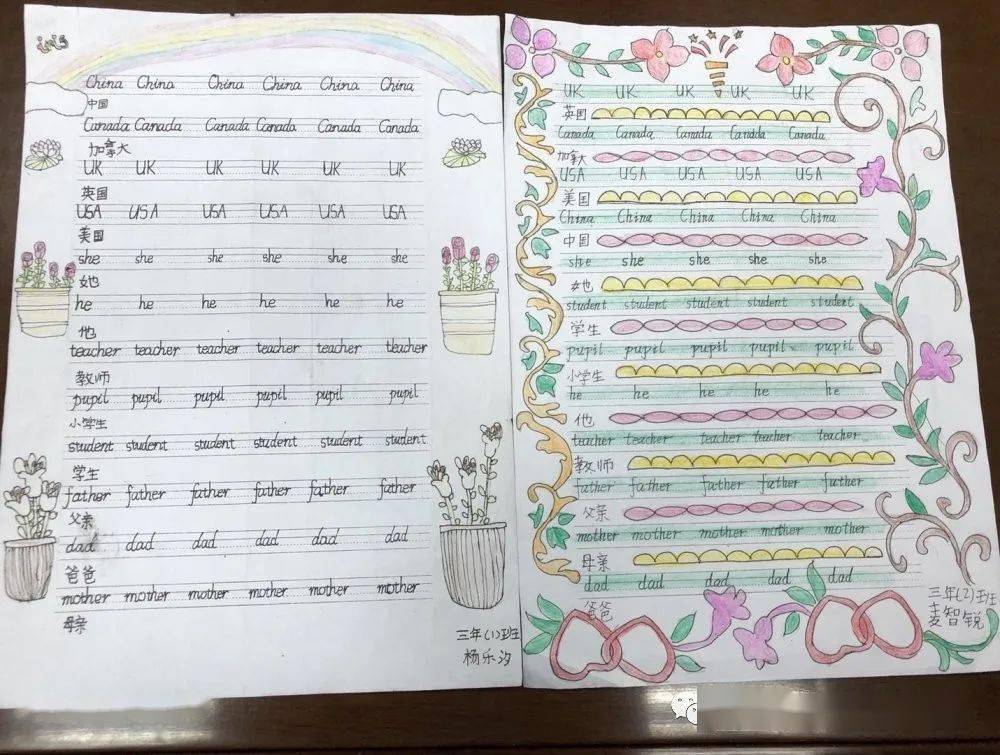 iris
China China China China China China
中国
Canada Canada Canada Canada Canada Canada
加拿大
UK UK UK UK UK UK
英国
USA USA USA USA USA USA
美国
she she she she she she
她
he he he he he he
他
teacher teacher teacher teacher teacher teacher
教师
pupil pupil pupil pupil pupil pupil
小学生
student student student student student student
学生
father father father father father father
父亲
dad dad dad dad dad dad
爸爸
mother mother mother mother mother mother
母亲
三年(1)班
杨乐汐
UK UK UK UK UK
英国
Canada Canada Canada Canada Canada
加拿大
USA USA USA USA USA
美国
China China China China China
中国
she she she she she
她
student student student student student
学生
pupil pupil pupil pupil pupil
小学生
he he he he he
他
teacher teacher teacher teacher teacher
教师
father father father father father
父亲
mother mother mother mother mother
母亲
dad dad dad dad dad
爸爸
三年(2)班
麦智锐